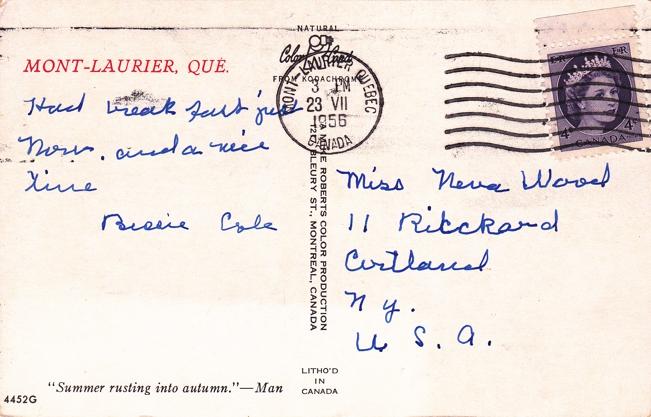 NATURAL
Color
FROM KODACHROME
MONT-LAURIER, QUÉ.
MONT-LAURIER QUEBEC
3 PM
23 VII
1956
CANADA
Had break fast just
Now. and a nice
time
Bessie Cole
ROBERTS COLOR PRODUCTION
BLEURY ST., MONTREAL, CANADA
4¢ 4¢
CANADA
Miss Neva Wood
11 Rickard
Cortland
N Y.
U. S. A.
"Summer rusting into autumn."—Man
4452G
LITHO'D
IN
CANADA